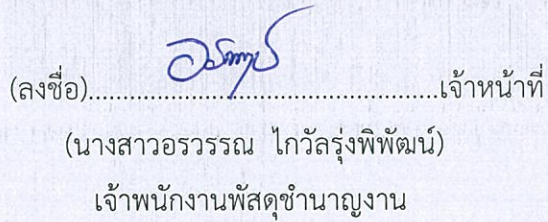 (ลงชื่อ)............................................เจ้าหน้าที่
(นางสาวอรวรรณ ไกวัลรุ่งพิพัฒน์)
เจ้าพนักงานพัสดุชำนาญงาน